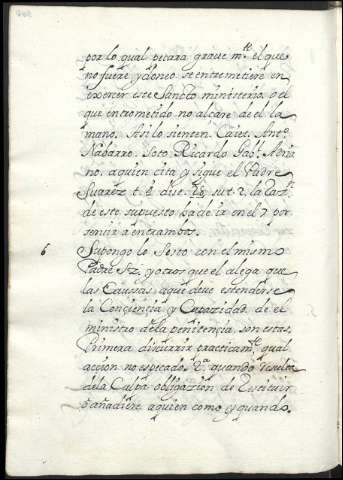 por lo qual pecará grave m.te el que
no fuere ydoneo se entremetiere en
exercer este Sancto ministerio, o el
que entrometido no alçare de el la
mano. Asi lo sienten Caiet. Ano.
Nabarro. Soto. Ricardo Gab.l Adria
no. a quien cita y sigue el Padre
Suarez t. 4. disc. 28. su t. 2. la
de este supuesto ha de ir en el 7 por
servir a entrambos.
6 Supongo lo Sesto con el mismo
Padre Sz. y otros que el alega que
las Caussas a que deve estenderse
la Conçiençia y Capazidad de el
ministro de la penitençia, son estas.
Primera discurrir practicam.te qual
acçion no es pecado. 2.a quando resulta
de la Culpa obligaçion de Restituir
o añadirse a quien como y quando.